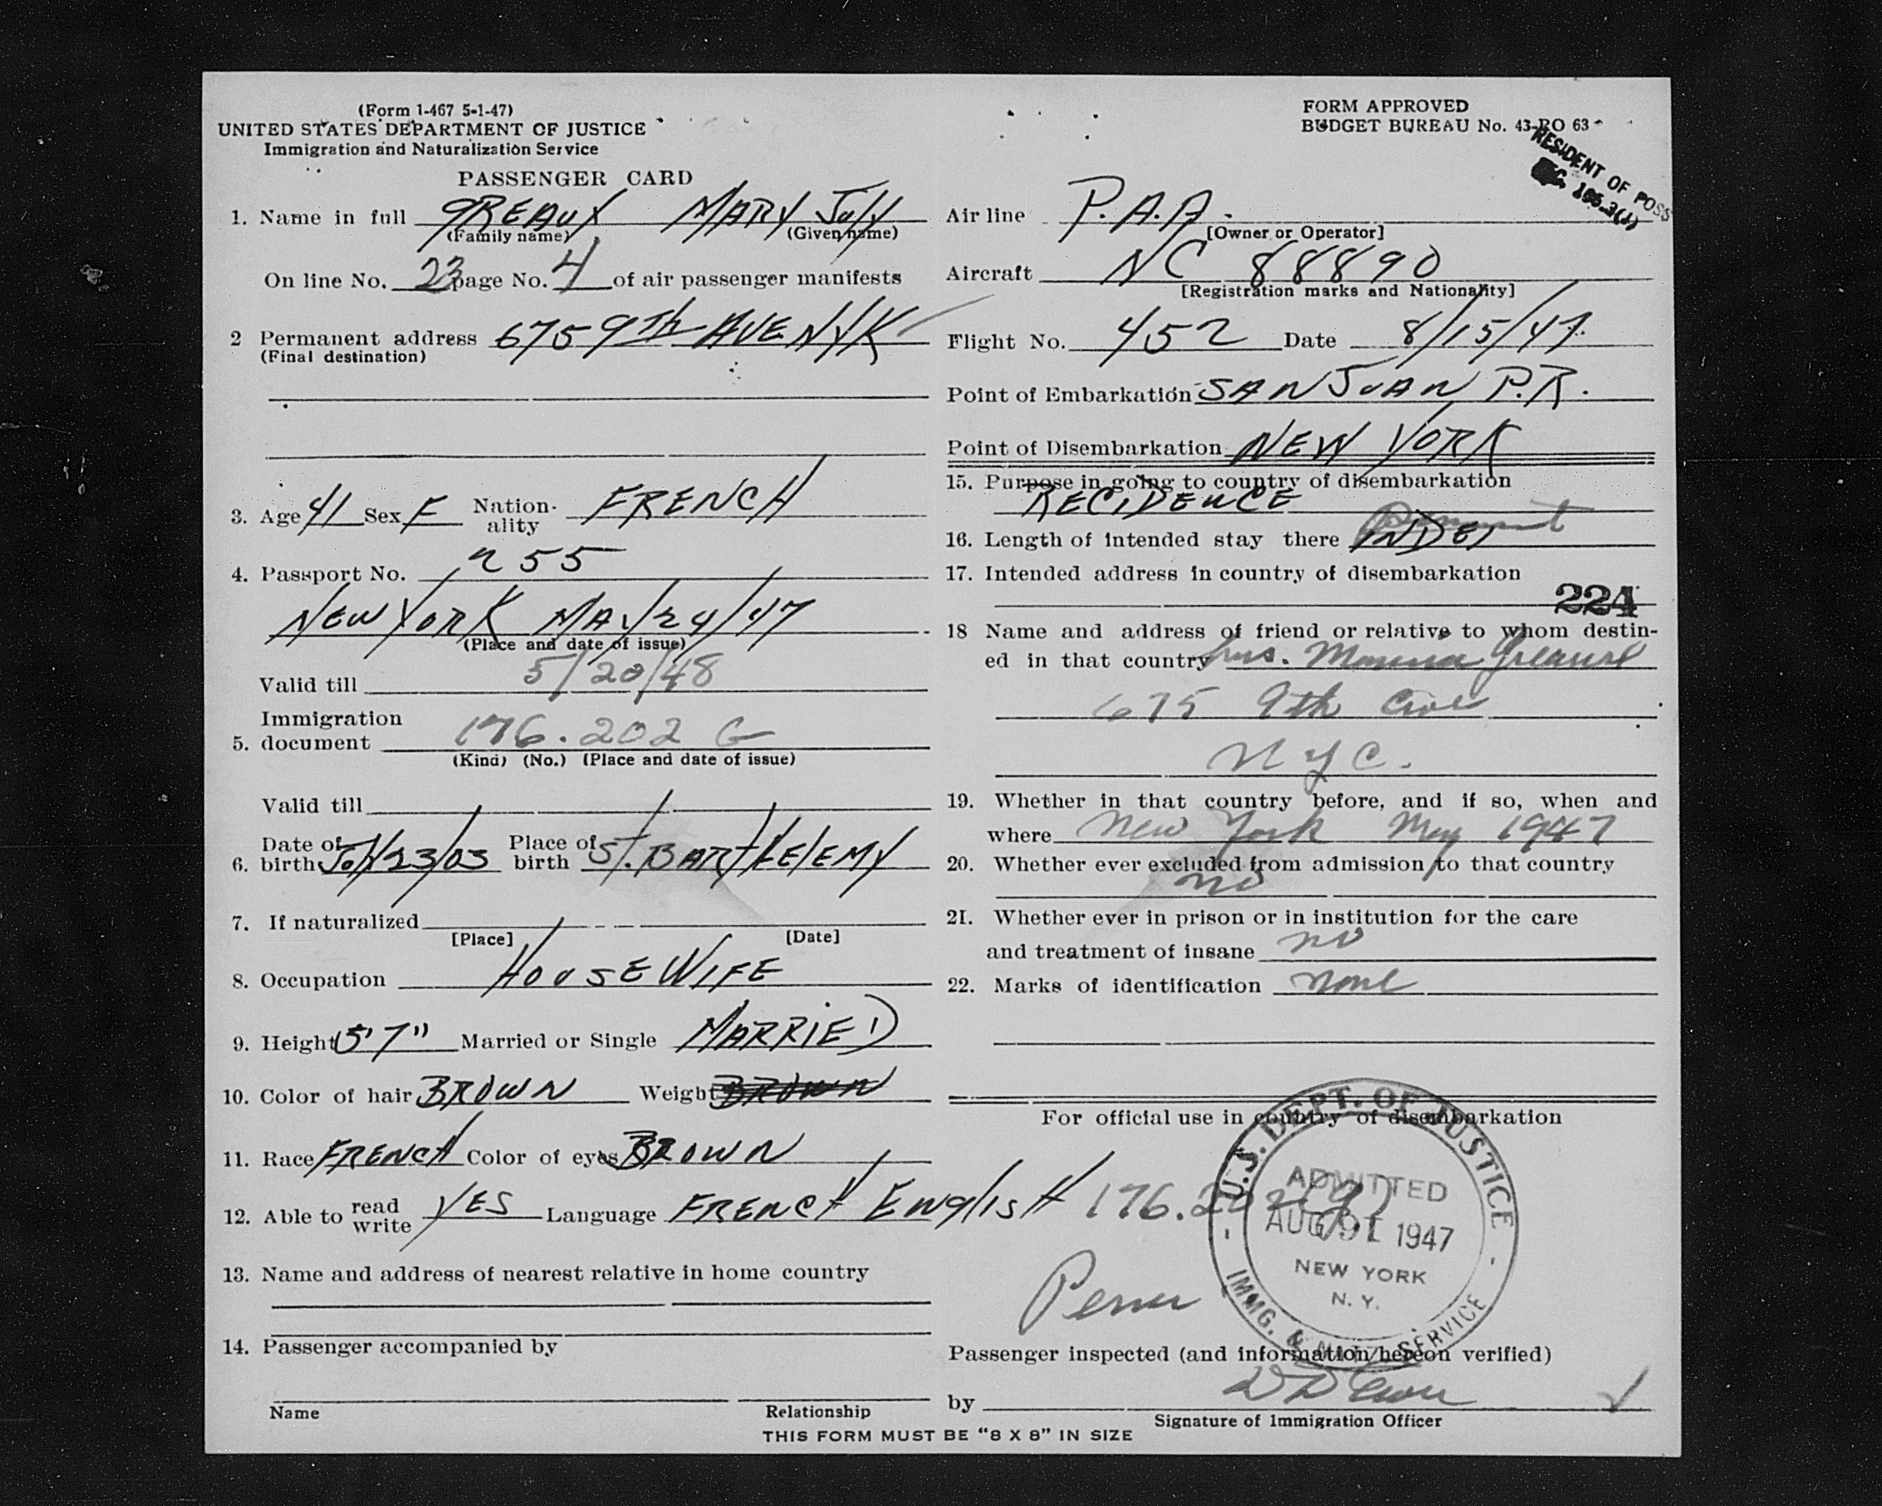 (Form 1-467 5-1-47)
UNITED STATES DEPARTMENT OF JUSTICE
Immigration and Naturalization Service
PASSENGER CARD
1. Name in full GREAUX MARY JULY
(Family name) (Given name)
On line No. 23 page No. 4 of air passenger manifests
2 Permanent address 675 9Th AVE NYK
(Final destination)
3. Age 41 Sex F Nation-ality FRENCH
4. Passport No. 255
NEW YORK MAY 24/47
(Place and date of issue)
Valid till 5/20/48
Immigration
5. document 176.202 G
(Kind) (No.) (Place and date of issue)
Valid till
6. Date of birth JULY 23/05 Place of birth ST. BARTHELEMY
7. If naturalized
[Place] [Date]
8. Occupation HOUSEWIFE
9. Height 5'7" Married or Single MARRIED
10. Color of hair BROWN Weight BROWN
11. Race FRENCH Color of eyes BROWN
12. Able to read write YES Language FRENCH ENglISH
13. Name and address of nearest relative in home country
14. Passenger accompanied by
Name Relationship
FORM APPROVED
BUDGET BUREAU No. 43-RO 63
RESIDENT OF POSS
Air line P.A.A.
[Owner or Operator]
Aircraft NC 88890
[Registration marks and Nationality]
Flight No. 452 Date 8/15/47
Point of Embarkation SAN JUAN P.R.
Point of Disembarkation NEW YORK
15. Purpose in going to country of disembarkation
RECIDENCE
16. Length of intended stay there INDEF
17. Intended address in country of disembarkation
224
18 Name and address of friend or relative to whom destin-
ed in that country Mrs.
675 9th Ave
NYC.
19. Whether in that country before, and if so, when and
where New York May 1947
20. Whether ever excluded from admission to that country
no
21. Whether ever in prison or in institution for the care
and treatment of insane no
22. Marks of identification none
For official use in country of disembarkation
U.S. DEPT. OF JUSTICE
ADMITTED
1947
NEW YORK
N. Y.
IMMG. & NATZ. SERVICE
Passenger inspected (and information hereon verified)
by
Signature of Immigration Officer
THIS FORM MUST BE "8 X 8" IN SIZE